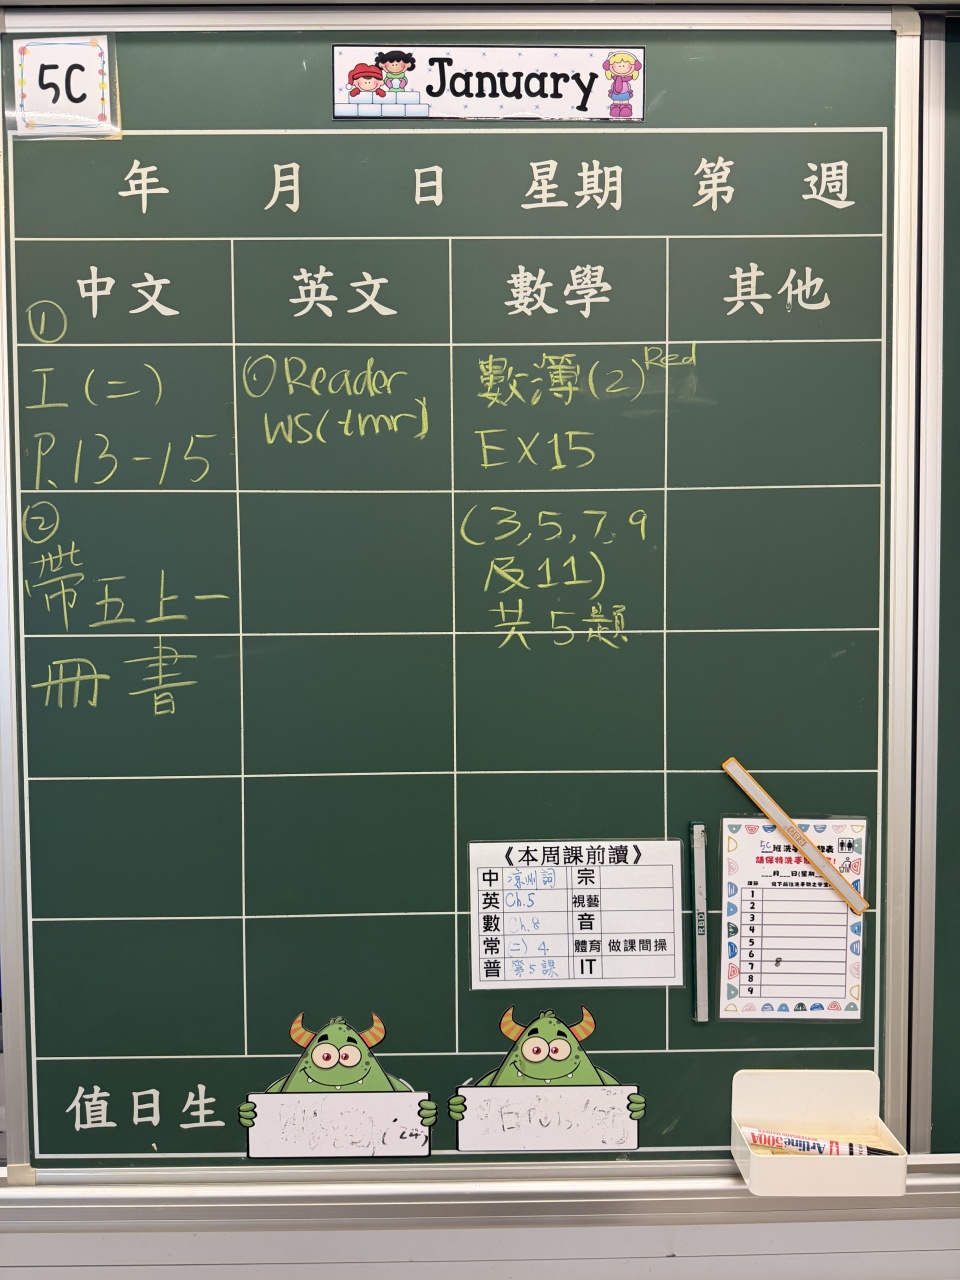 5C
January
年 月 日 星期 第 週
中文 英文 數學 其他
①
工(二)
P.13-15
②
帶五上一
冊書
①Reader
WS(tmr)
數簿(2)Red
EX15
(3,5,7,9
及11)
共5題
《本周課前讀》
中 涼州詞 宗
英 Ch.5 視藝
數 Ch.8 音
常 (二) 4 體育 做課間操
普 第5課 IT
5C班洗手
請保持洗手
月 日(星期
課節
1
2
3
4
5
6
7 8
8
9
值日生
(24)
Artline 500A